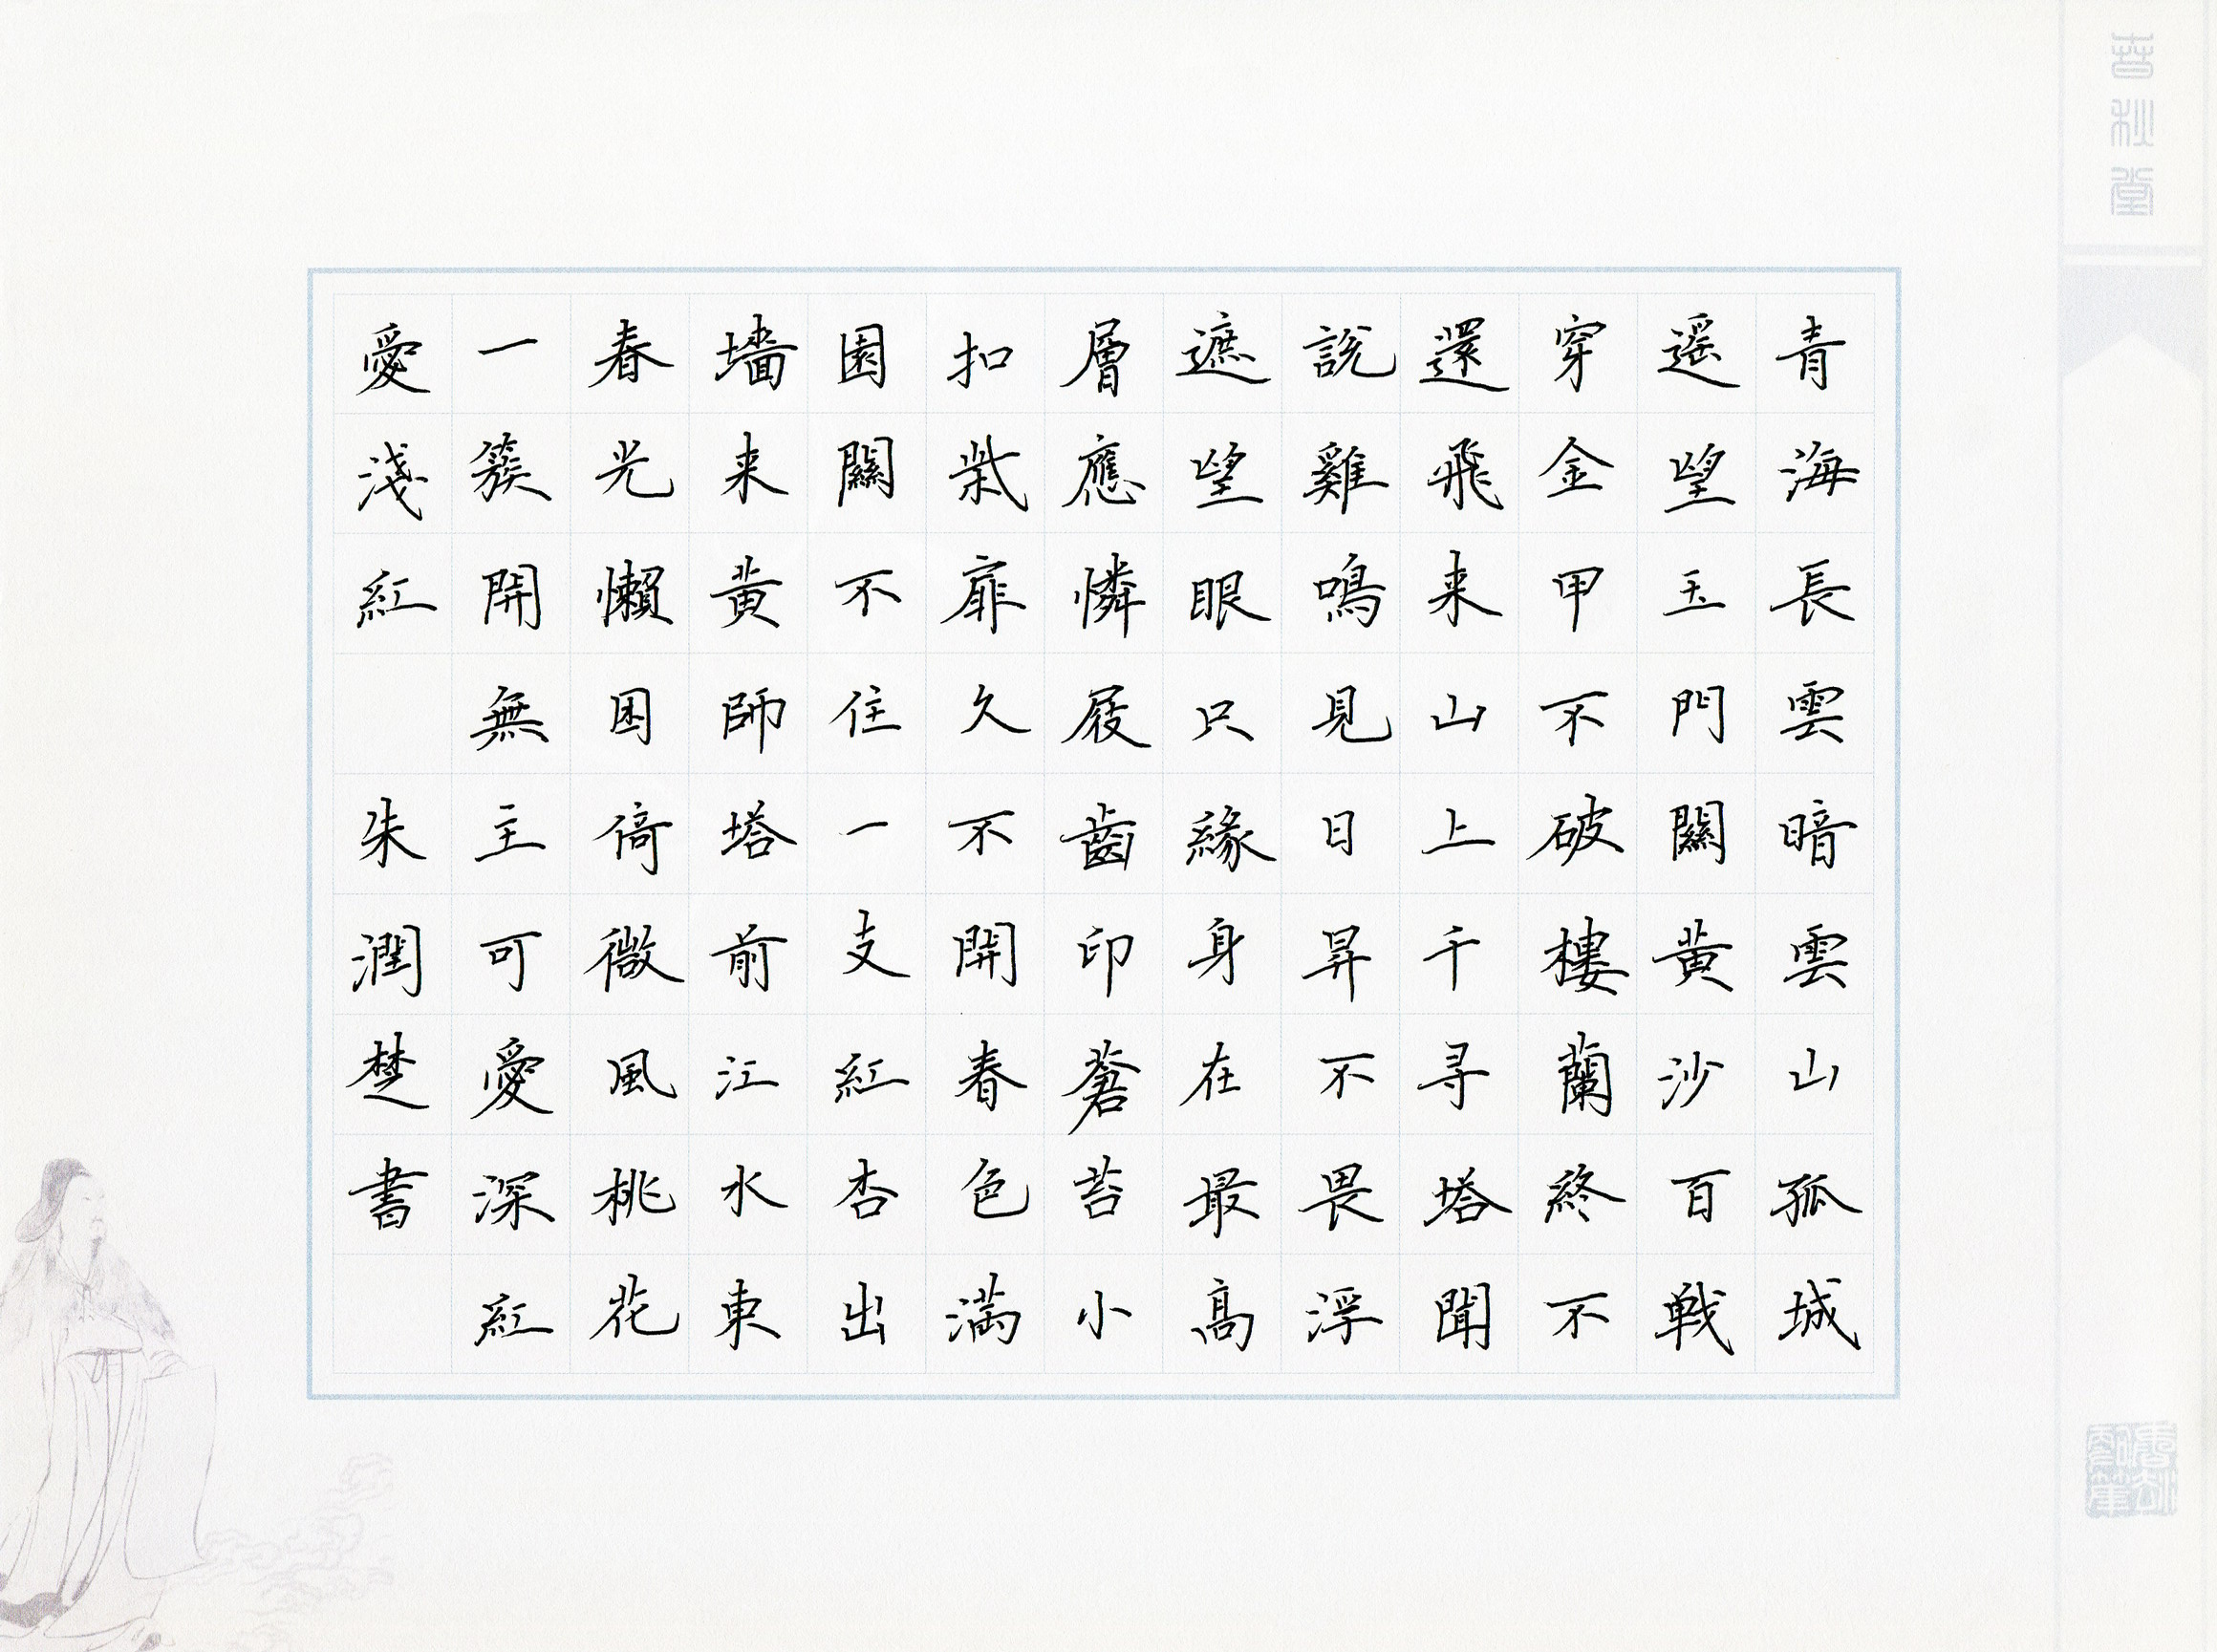 青海長雲暗雲山孤城
遥望玉門關黄沙百戦
穿金甲不破樓蘭終不
還飛来山上千寻塔聞
說雞鳴見日昇不畏浮
遮望眼只緣身在最高
層應憐屐齒印蒼苔小
扣柴扉久不開春色满
園關不住一支紅杏出
墻来黄師塔前江水東
春光懶困倚微風桃花
一簇開無主可愛深紅
愛淺紅 朱潤楚書
春秋堂